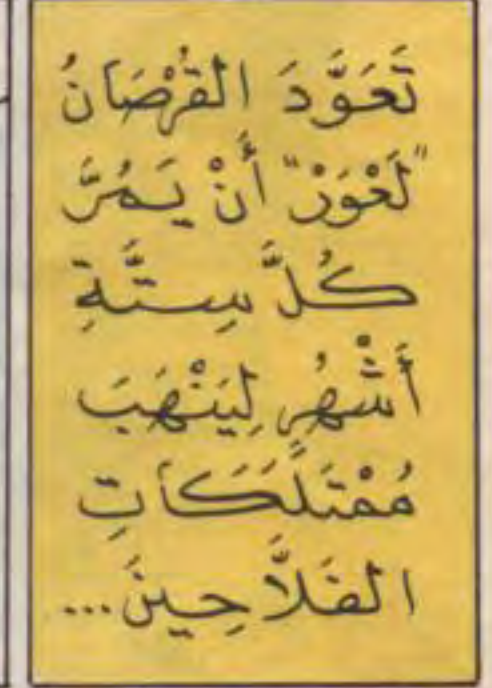 تَعَوَّدَ القُرْصَانُ
"لَعْوَرْ" أَنْ يَمُرَّ
كُلَّ سِتَّةِ
أَشْهُرٍ لِيَنْهَبَ
مُمْتَلَكَاتِ
الفَلاَّحِينَ...